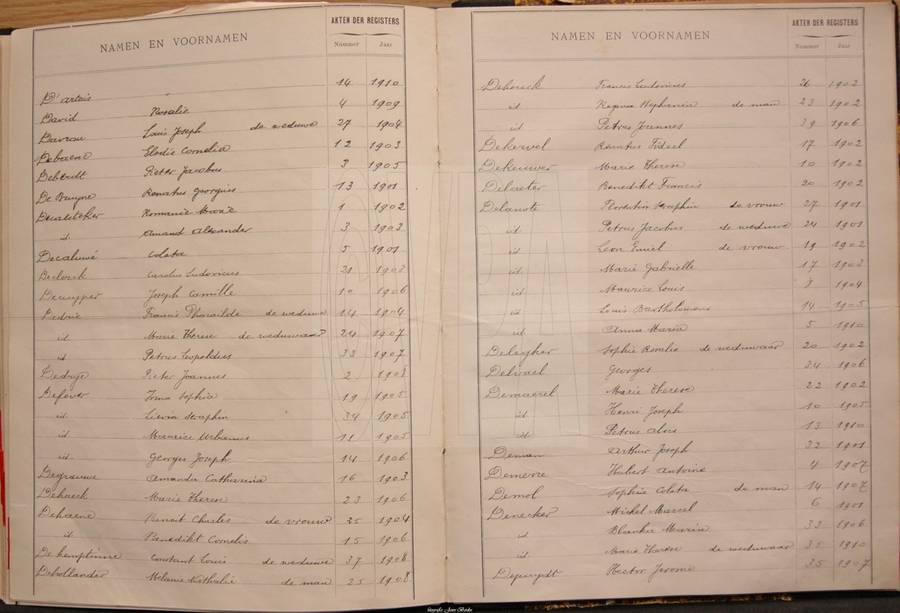 AKTEN DER REGISTERS
NAMEN EN VOORNAMEN
Nummer Jaar
D'artois 14 1910
David Rosalie 4 1909
Davrou Louis Joseph de weduwe 27 1904
Debaene Elodie Cornelia 12 1903
Pieter Jacobus 3 1905
De Bruyne Renatus Georgius 13 1901
Romanie 1 1902
id. Amand Alexander 3 1903
Decaluwé Coleta 5 1901
Declerck Carolus Ludovicus 31 1902
Decuyper Joseph Camille 10 1906
Francis de weduwe 14 1904
id Marie Therese de weduwaar 24 1907
id Petrus Leopoldus 33 1907
Pieter Joannes 2 1908
Defever Irma Sophia 19 1905
id Lievin Seraphin 34 1905
id Maurice Urbanus 11 1905
id. Georges Joseph 14 1906
Degrauwe Amandia Catharina 16 1903
Marie Therese 23 1906
Dehaene Benoit Charles de vrouw 35 1904
id Benedikt Cornelis 15 1906
De kemptinne Constant Louis de weduwe 37 1908
Dehollander Melanie Nathalie de man 25 1908
AKTEN DER REGISTERS
NAMEN EN VOORNAMEN
Nummer Jaar
Francis Ludovicus 26 1902
id Regina de man 23 1902
id Petrus Joannes 39 1906
Dekervel Renatus Fideel 17 1902
Dekeuwer Marie Therese 10 1902
Delaeter Benedikt Francis 20 1902
Delanote Florentin Seraphin de vrouw 27 1901
id Petrus Jacobus de weduwe 24 1901
id Leon Emiel de vrouw 19 1902
id Marie Gabrielle 17 1903
id Maurice Louis 3 1904
id Louis Bartholomeus 14 1905
id Anna Maria 5 1910
Deleyker Sophie Rosalie de weduwaar 20 1902
Delvael Georges 34 1906
Demaerel Marie Therese 22 1902
id Henri Joseph 10 1905
id Petrus Alois 13 1910
Deman Arthur Joseph 32 1901
Demerre Hubert Antoine 4 1907
Demol Sophie Coleta de man 14 1907
Denecker Michel Marcel 6 1901
id Blanche Maria 33 1906
id Marie Therese de weduwaar 35 1910
Depuydt Hector Jerome 35 1907